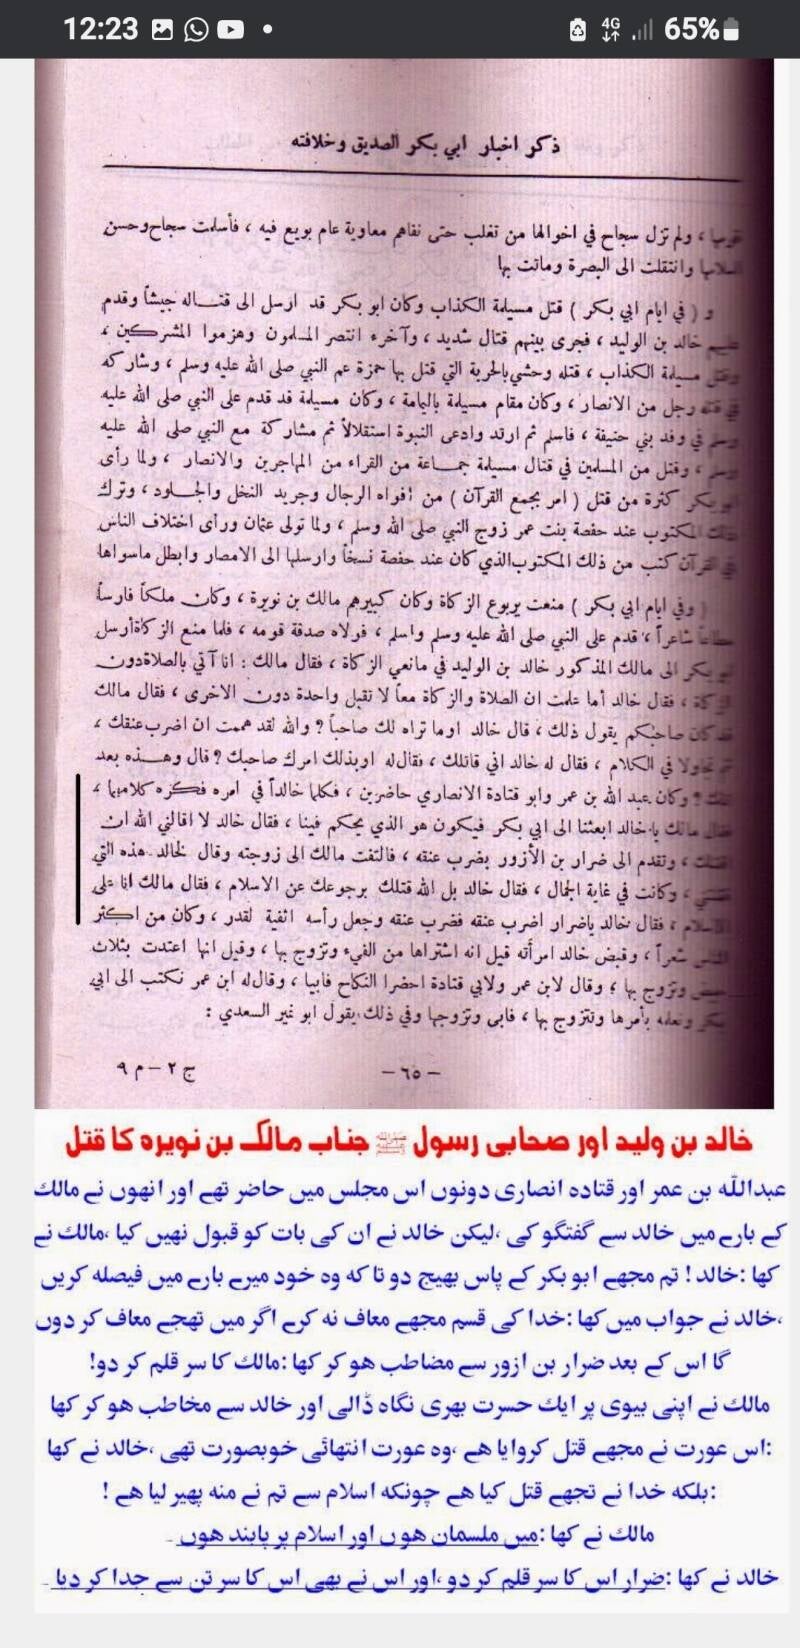 12:23
4G 65%
ذكر اخبار ابي بكر الصديق وخلافته
، ولم تزل سجاح في اخوالها من تغلب حتى نفاهم معاوية عام بويع فيه ، فأسلمت سجاح وحسن
اسلامها وانتقلت الى البصرة وماتت بها
و ( في ايام ابي بكر ) قتل مسيلمة الكذاب وكان ابو بكر قد ارسل الى قتاله جيشاً وقدم
عليهم خالد بن الوليد ، فجرى بينهم قتال شديد ، وآخره انتصر المسلمون وهزموا المشركين ،
وقتل مسيلمة الكذاب ، قتله وحشي بالحربة التي قتل بها حمزة عم النبي صلى الله عليه وسلم ، وشاركه
في قتله رجل من الانصار ، وكان مقام مسيلمة باليامة ، وكان مسيلمة قد قدم على النبي صلى الله عليه
وسلم في وفد بني حنيفة ، فاسلم ثم ارتد وادعى النبوة استقلالاً ثم مشاركة مع النبي صلى الله عليه
وسلم ، وقتل من المسلمين في قتال مسيلمة جماعة من القراء من المهاجرين والانصار ، ولما رأى
ابو بكر كثرة من قتل ( امر بجمع القرآن ) من أفواه الرجال وجريد النخل والجلود ، وترك
ذلك المكتوب عند حفصة بنت عمر زوج النبي صلى الله عليه وسلم ، ولما تولى عثمان ورأى اختلاف الناس
في القرآن كتب من ذلك المكتوب الذي كان عند حفصة نسخاً وارسلها الى الامصار وابطل ماسواها
( وفي ايام ابي بكر ) منعت يربوع الزكاة وكان كبيرهم مالك بن نويرة ، وكان ملكاً فارساً
مطاعاً شاعراً ، قدم على النبي صلى الله عليه وسلم واسلم ، فولاه صدقة قومه ، فلما منع الزكاة أرسل
ابو بكر الى مالك المذكور خالد بن الوليد في مانعي الزكاة ، فقال مالك : انا آتي بالصلاة دون
الزكاة ، فقال خالد أما علمت ان الصلاة والزكاة معاً لا تقبل واحدة دون الاخرى ، فقال مالك
قد كان صاحبكم يقول ذلك ، قال خالد اوما تراه لك صاحباً ? والله لقد هممت ان اضرب عنقك ،
ثم تجاولا في الكلام ، فقال له خالد اني قاتلك ، فقال له اوبذلك امرك صاحبك ? قال وهذه بعد
تلك ? وكان عبد الله بن عمر وابو قتادة الانصاري حاضرين ، فكلما خالداً في امره فكره كلامهما ،
فقال مالك يا خالد ابعثنا الى ابي بكر فيكون هو الذي يحكم فينا ، فقال خالد لا اقالني الله ان
اقتلك ، وتقدم الى ضرار بن الأزور بضرب عنقه ، فالتفت مالك الى زوجته وقال لخالد هذه التي
قتلتني ، وكانت في غاية الجمال ، فقال خالد بل الله قتلك برجوعك عن الاسلام ، فقال مالك انا على
الاسلام ، فقال خالد ياضرار اضرب عنقه فضرب عنقه وجعل رأسه اثفية لقدر ، وكان من اكثر
الناس شعراً ، وقبض خالد امرأته قيل انه اشتراها من الفيء وتزوج بها ، وقيل انها اعتدت بثلاث
حيض وتزوج بها ، وقال لابن عمر ولابي قتادة احضرا النكاح فابيا ، وقال له ابن عمر نكتب الى ابي
بكر ونعلمه بأمرها وتتزوج بها ، فابى وتزوجها وفي ذلك يقول ابو نمير السعدي :
ج ٢ – م ٩
– ٦٥ –
خالد بن ولید اور صحابی رسول ﷺ جناب مالک بن نویرہ کا قتل
عبداللہ بن عمر اور قتادہ انصاری دونوں اس مجلس میں حاضر تھے اور انھوں نے مالک
کے بارے میں خالد سے گفتگو کی ،لیکن خالد نے ان کی بات کو قبول نہیں کیا ،مالک نے
کہا :خالد ! تم مجھے ابو بکر کے پاس بھیج دو تا کہ وہ خود میرے بارے میں فیصلہ کریں
،خالد نے جواب میں کہا :خدا کی قسم مجھے معاف نہ کرے اگر میں تھجے معاف کر دوں
گا اس کے بعد ضرار بن ازور سے مضاطب ھو کر کھا :مالک کا سر قلم کر دو!
مالک نے اپنی بیوی پر ایک حسرت بھری نگاہ ڈالی اور خالد سے مخاطب ھو کر کھا
:اس عورت نے مجھے قتل کروایا ھے ،وہ عورت انتھائی خوبصورت تھی ،خالد نے کھا
:بلکہ خدا نے تجھے قتل کیا ھے چونکہ اسلام سے تم نے منہ پھیر لیا ھے !
مالک نے کھا :میں ملسمان ھوں اور اسلام پر پابند ھوں ۔
خالد نے کھا :ضرار اس کا سر قلم کر دو ،اور اس نے بھی اس کا سر تن سے جدا کر دیا ۔